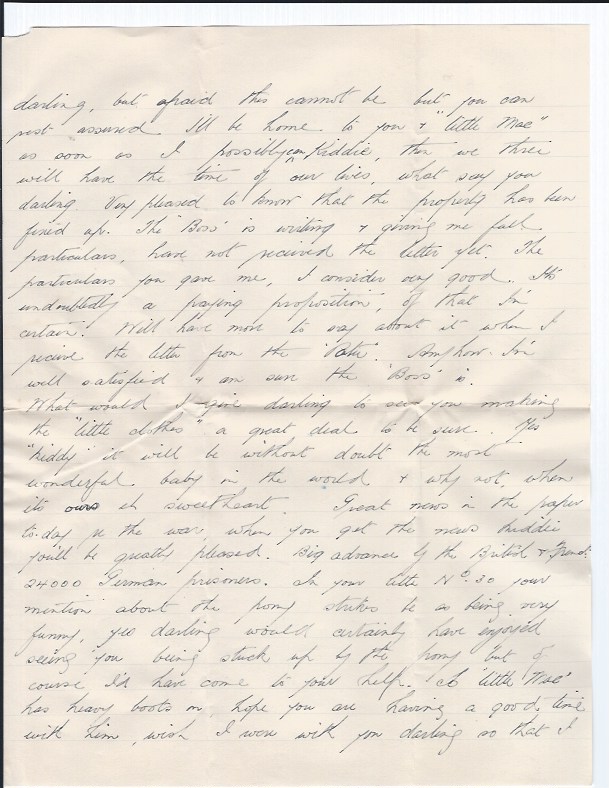 darling, but afraid this cannot be but you can
rest assured I'll be home to you & "little Mac"
as soon as I possibly can Kiddie, then we three
will have the time of our lives, what say you
darling. Very pleased to know that the property has been
fixed up. The 'Boss' is writing & giving me full
particulars, have not received the letter yet. The
particulars you gave me, I consider very good. It's
undoubtedly a paying proposition, of that I'm
certain. Will have more to say about it when I
receive the letter from the 'Pater. Anyhow I'm
well satisfied & am sure the 'Boss' is.
What would I give darling to see you making
the "little clothes" a great deal to be sure. Yes
"Kiddy" it will be without doubt the most
wonderful baby in the world & why not, when
its ours eh sweetheart. Great news in the paper
to-day re the war, when you get the news Kiddie
you'll be greatly pleased. Big advance by the British & French
24000 German prisoners. In your letter No. 30 your
mention about the pony strikes me as being very
funny, yes darling would certainly have enjoyed
seeing you being stuck up by the pony but of
course I'd have come to your help. So little Mac'
has heavy boots on, hope you are having a good time
with him, wish I were with you darling so that I